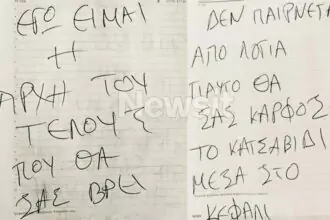 ΕΓΩ ΕΙΜΑΙ
Η
ΑΡΧΗ ΤΟΥ
ΤΕΛΟΥΣ
ΠΟΥ ΘΑ
ΣΑΣ ΒΡΕΙ
ΔΕΝ ΠΑΙΡΝΕΤΑ
ΑΠΟ ΛΟΓΙΑ
ΓΙΑΥΤΟ ΘΑ
ΣΑΣ ΚΑΡΦΟΣ
ΤΟ ΚΑΤΣΑΒΙΔΙ
ΜΕΣΑ ΣΤΟ
ΚΕΦΑΛΙ